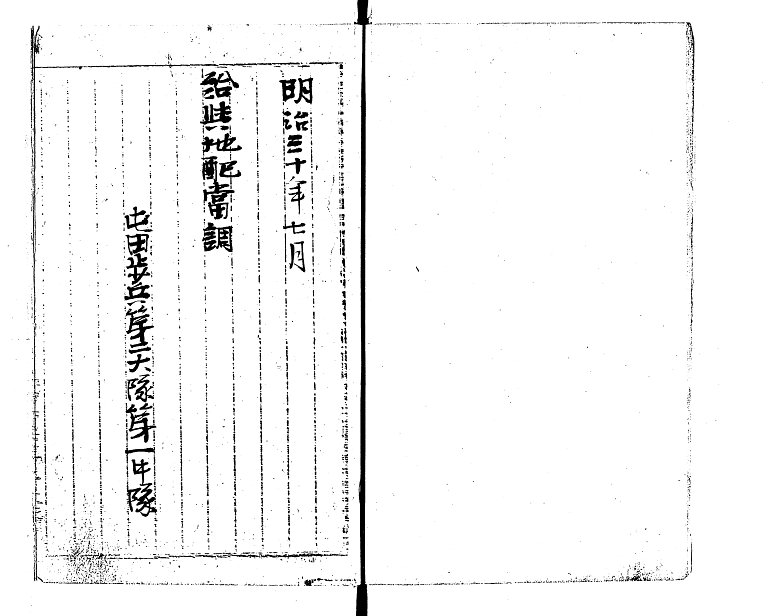 明治三十年七月
給與地配當調
屯田歩兵第三大隊第一中隊